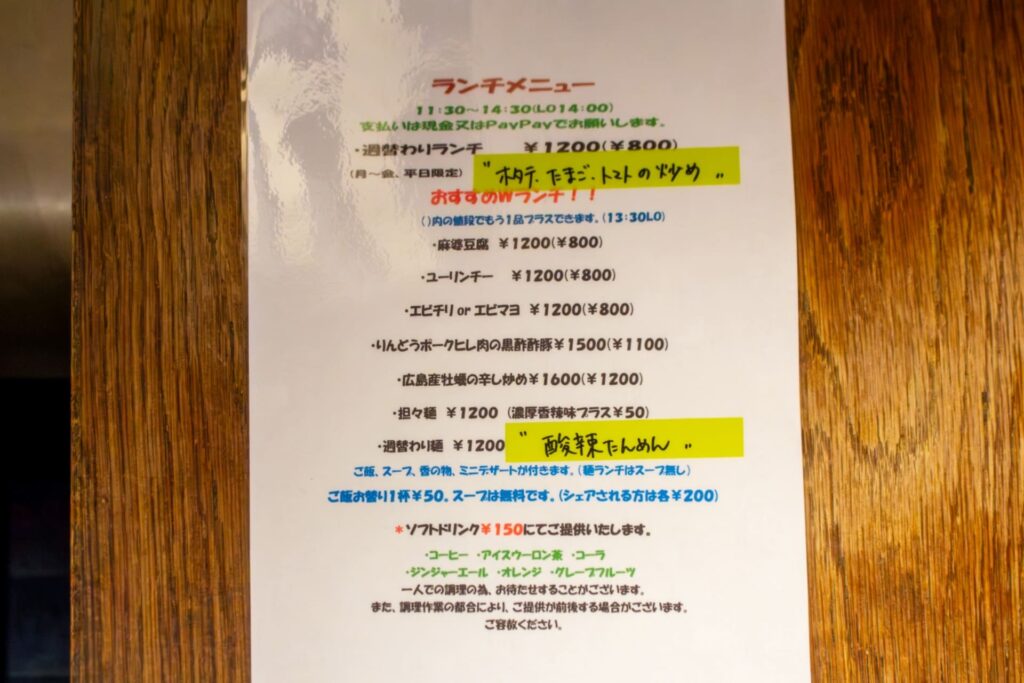 ランチメニュー
11:30～14:30(LO14:00)
支払いは現金又はPayPayでお願いします。
・週替わりランチ ￥1200(￥800)
(月～金、平日限定) 〝ホタテ、たまご、トマトの炒め〟
おすすめWランチ！！
( )内の値段でもう1品プラスできます。(13:30LO)
・麻婆豆腐 ￥1200(￥800)
・ユーリンチー ￥1200(￥800)
・エビチリorエビマヨ ￥1200(￥800)
・りんどうポークヒレ肉の黒酢酢豚￥1500(￥1100)
・広島産牡蠣の辛し炒め￥1600(￥1200)
・担々麺 ￥1200 (濃厚香辣味プラス￥50)
・週替わり麺 ￥1200 〝酸辣たんめん〟
ご飯、スープ、香の物、ミニデザートが付きます。(麺ランチはスープ無し)
ご飯お替り1杯￥50。スープは無料です。(シェアされる方は各￥200)
＊ソフトドリンク￥150にてご提供いたします。
・コーヒー ・アイスウーロン茶 ・コーラ
・ジンジャーエール ・オレンジ ・グレープフルーツ
一人での調理の為、お待たせすることがございます。
また、調理作業の都合により、ご提供が前後する場合がございます。
ご容赦ください。